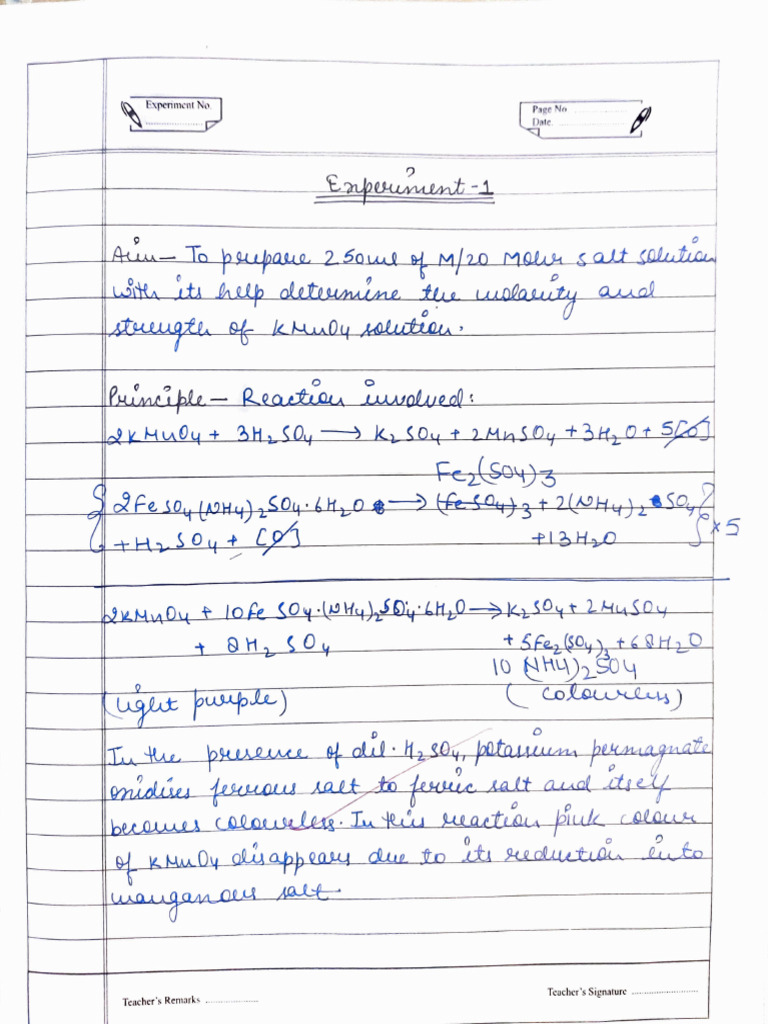 Experiment No.
Page No
Date
Experiment-1
Aim— To prepare 250ml of M/20 Mohr salt solution
with its help determine the molarity and
strength of KMnO4 solution.
Principle— Reaction involved:
2KMnO4 + 3H2SO4 → K2SO4 + 2MnSO4 + 3H2O + 5[O]
Fe2(SO4)3
{2FeSO4(NH4)2SO4·6H2O → (FeSO4)3 + 2(NH4)2SO4} ×5
+H2SO4 + [O] +13H2O
2KMnO4 + 10FeSO4·(NH4)2SO4·6H2O → K2SO4 + 2MnSO4
+ 8H2SO4 + 5Fe2(SO4)3 + 68H2O
10 (NH4)2SO4
(light purple) (colourless)
In the presence of dil. H2SO4, potassium permagnate
oxidises ferrous salt to ferric salt and itself
becomes colourless. In this reaction pink colour
of KMnO4 disappears due to its reduction into
manganous salt.
Teacher's Remarks
Teacher's Signature